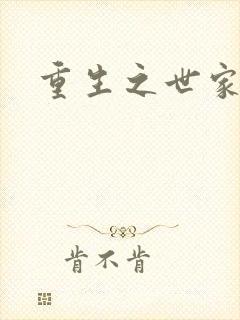 重生之世家
肯不肯